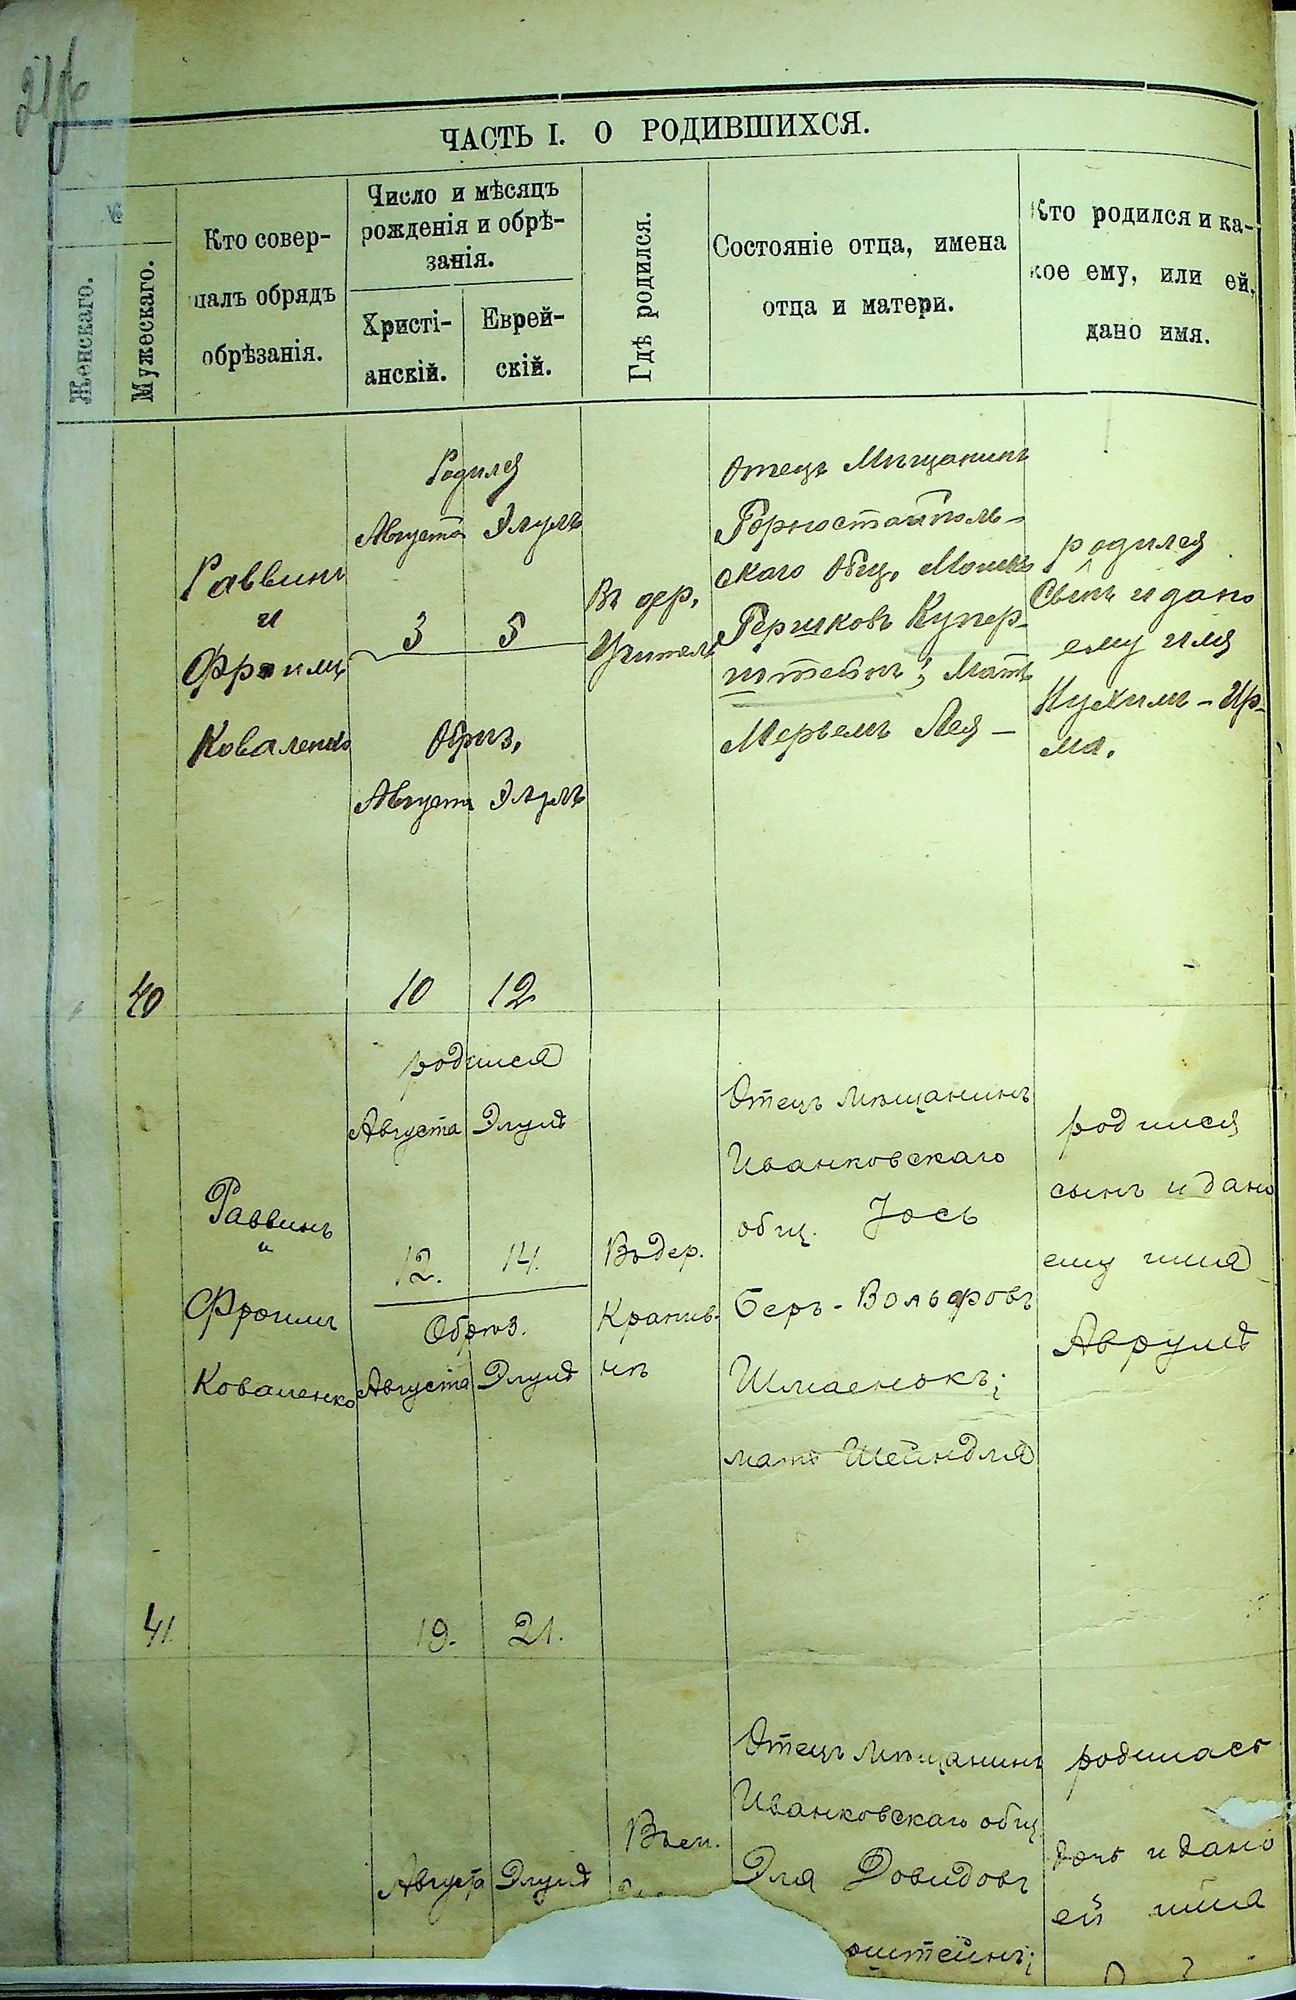 ЧАСТЬ I. О РОДИВШИХСЯ.
№
Женскаго.
Мужескаго.
Кто совер-
шалъ обрядъ
обрѣзанія.
Число и мѣсяцъ
рожденія и обрѣ-
занія.
Христі-
анскій.
Еврей-
скій.
Гдѣ родился.
Состояніе отца, имена
отца и матери.
Кто родился и ка-
кое ему, или ей,
дано имя.
40
Раввинъ
и
Фроимъ
Коваленко
Родился
Августа Элулъ
3 5
Обрѣз.
Августа Элулъ
10 12
Въ дер.
Отецъ Мѣщанинъ
Горностайполь-
скаго Общ. Мошко
Гершковъ Купер-
штейнъ; Мать
Мерьемъ Лея -
родился
Сынъ и дано
ему имя
Нухимъ - Ир-
ма.
41.
Раввинъ
и
Фроимъ
Коваленко
родился
Августа Элулъ
12. 14.
Обрѣз.
Августа Элулъ
19. 21.
Въ дер.
Крапив-
нѣ
Отецъ мѣщанинъ
Иванковскаго
общ. Іось
Беръ - Вольфовъ
Шмаенокъ;
мать Шейндля
родился
сынъ и дано
ему имя
Аврумъ
Августа Элулъ
Отецъ мѣщанинъ
Иванковскаго общ.
Эля Довидовъ
штейнъ;
родилась
дочь и дано
ей имя